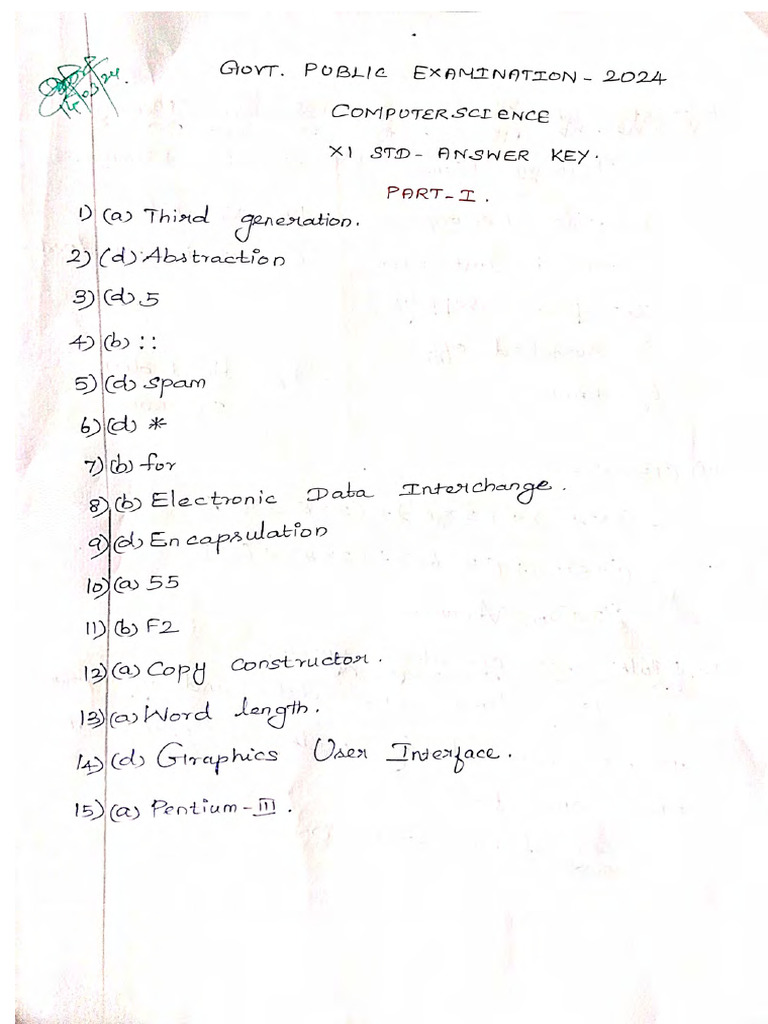 GOVT. PUBLIC EXAMINATION - 2024
COMPUTER SCIENCE
XI STD - ANSWER KEY.
PART - I.
1) (a) Third generation.
2) (d) Abstraction
3) (d) 5
4) (b) ::
5) (d) spam
6) (d) *
7) (b) for
8) (b) Electronic Data Interchange.
9) (d) Encapsulation
10) (a) 55
11) (b) F2
12) (a) Copy constructor.
13) (a) Word length.
14) (d) Graphics User Interface.
15) (a) Pentium - III.